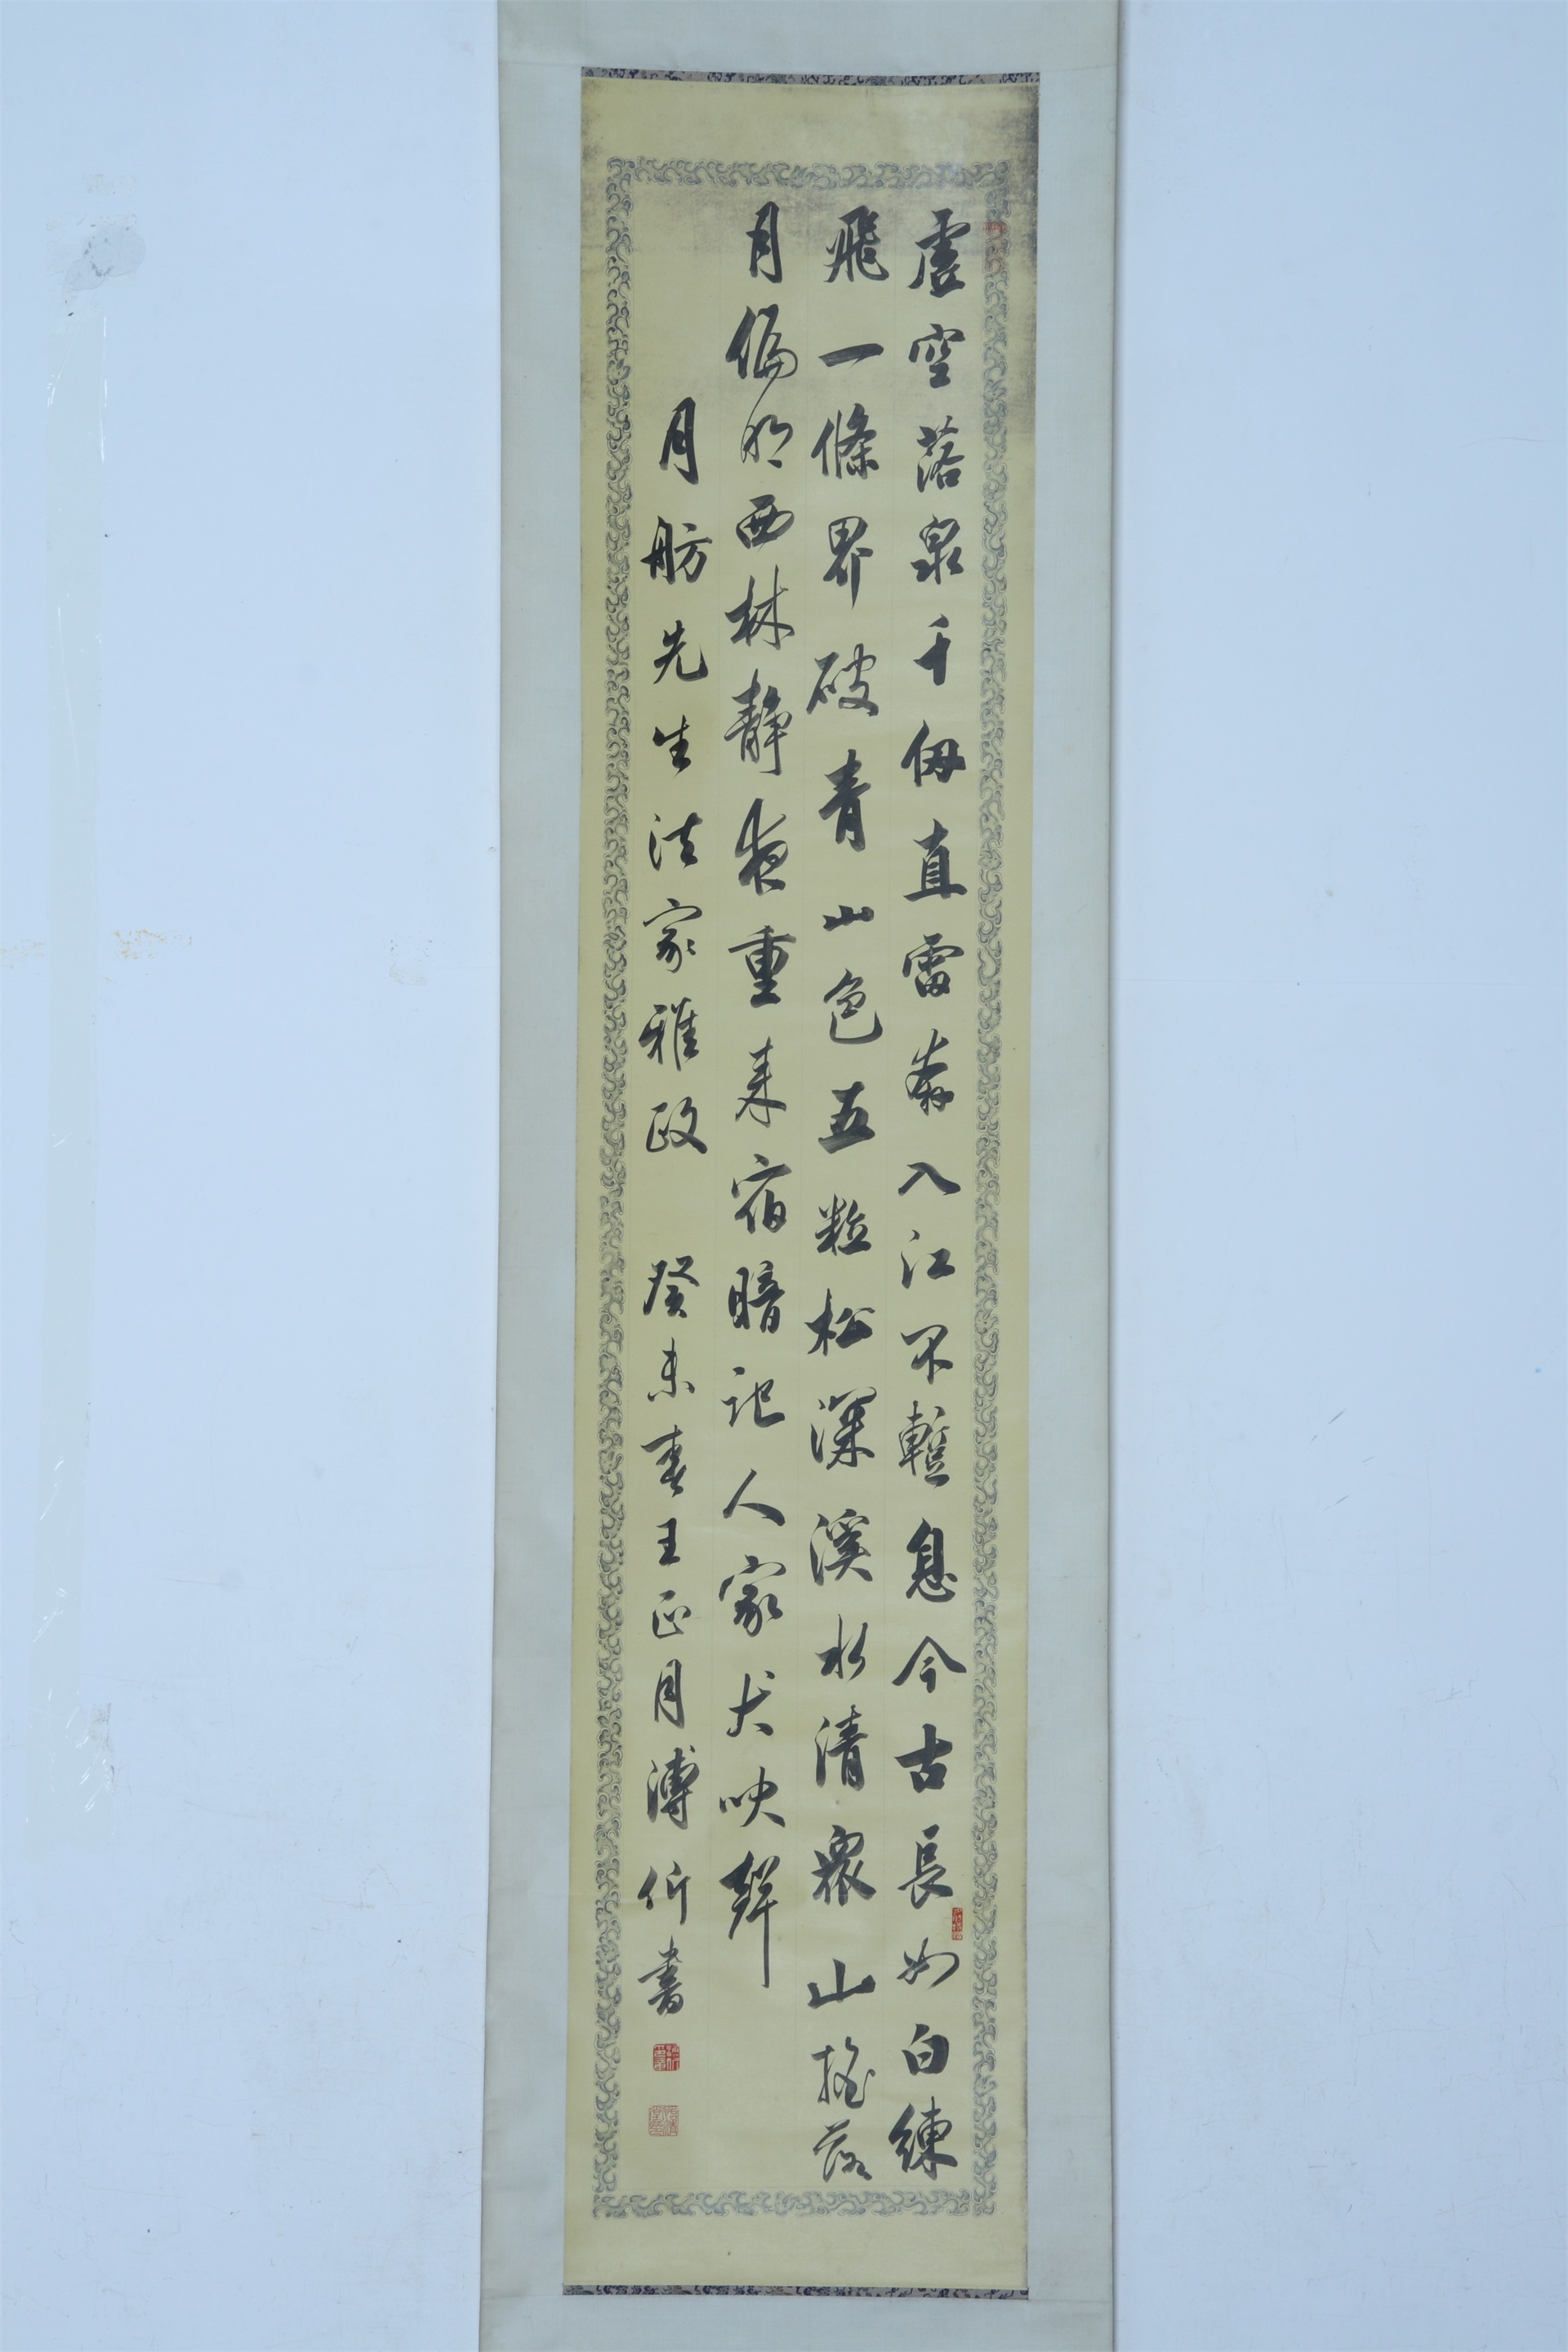 虛空落泉千仞直雷奔入江不暫息今古長如白練
飛一條界破青山色五粒松深溪水清衆山搖落
月偏明西林靜夜重來宿暗記人家犬吠聲
月舫先生法家雅政 癸未春王正月溥伒書